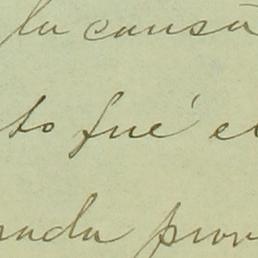 la causa
to fué el
nada prov